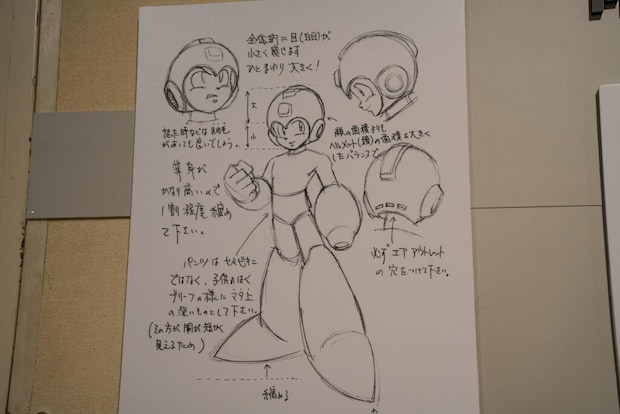 全体的に目(白目)が
小さく感じます
ひとまわり大きく!
大
小
があっても良いでしょう。
顔の面積よりも
ヘルメット(頭)の面積を大きく
したバランスで
等身が
かなり高いので
1割程度縮め
て下さい。
必ずエアアウトレット
の穴をつけて下さい。
パンツは
ではなく、子供がはく
ブリーフの様にマタ上
の深いものとして下さい。
(その方が胴が短かく
見えるため)
縮める